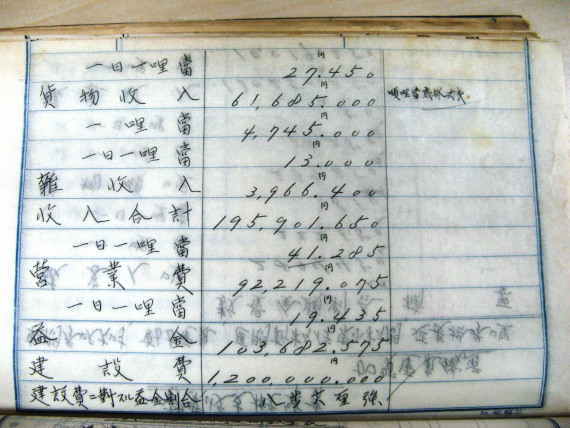 一日一哩當 27.450
貨物收入 61,685.000
一哩當 4,745.000
一日一哩當 13.000
雜收入 3,966.400
收入合計 195,901.650
一日一哩當 41.285
営業費 92,219.075
一日一哩當 19.435
益金 103,682.575
建設費 1,200,000.000
建設費ニ對スル益金割合 八歩六厘強